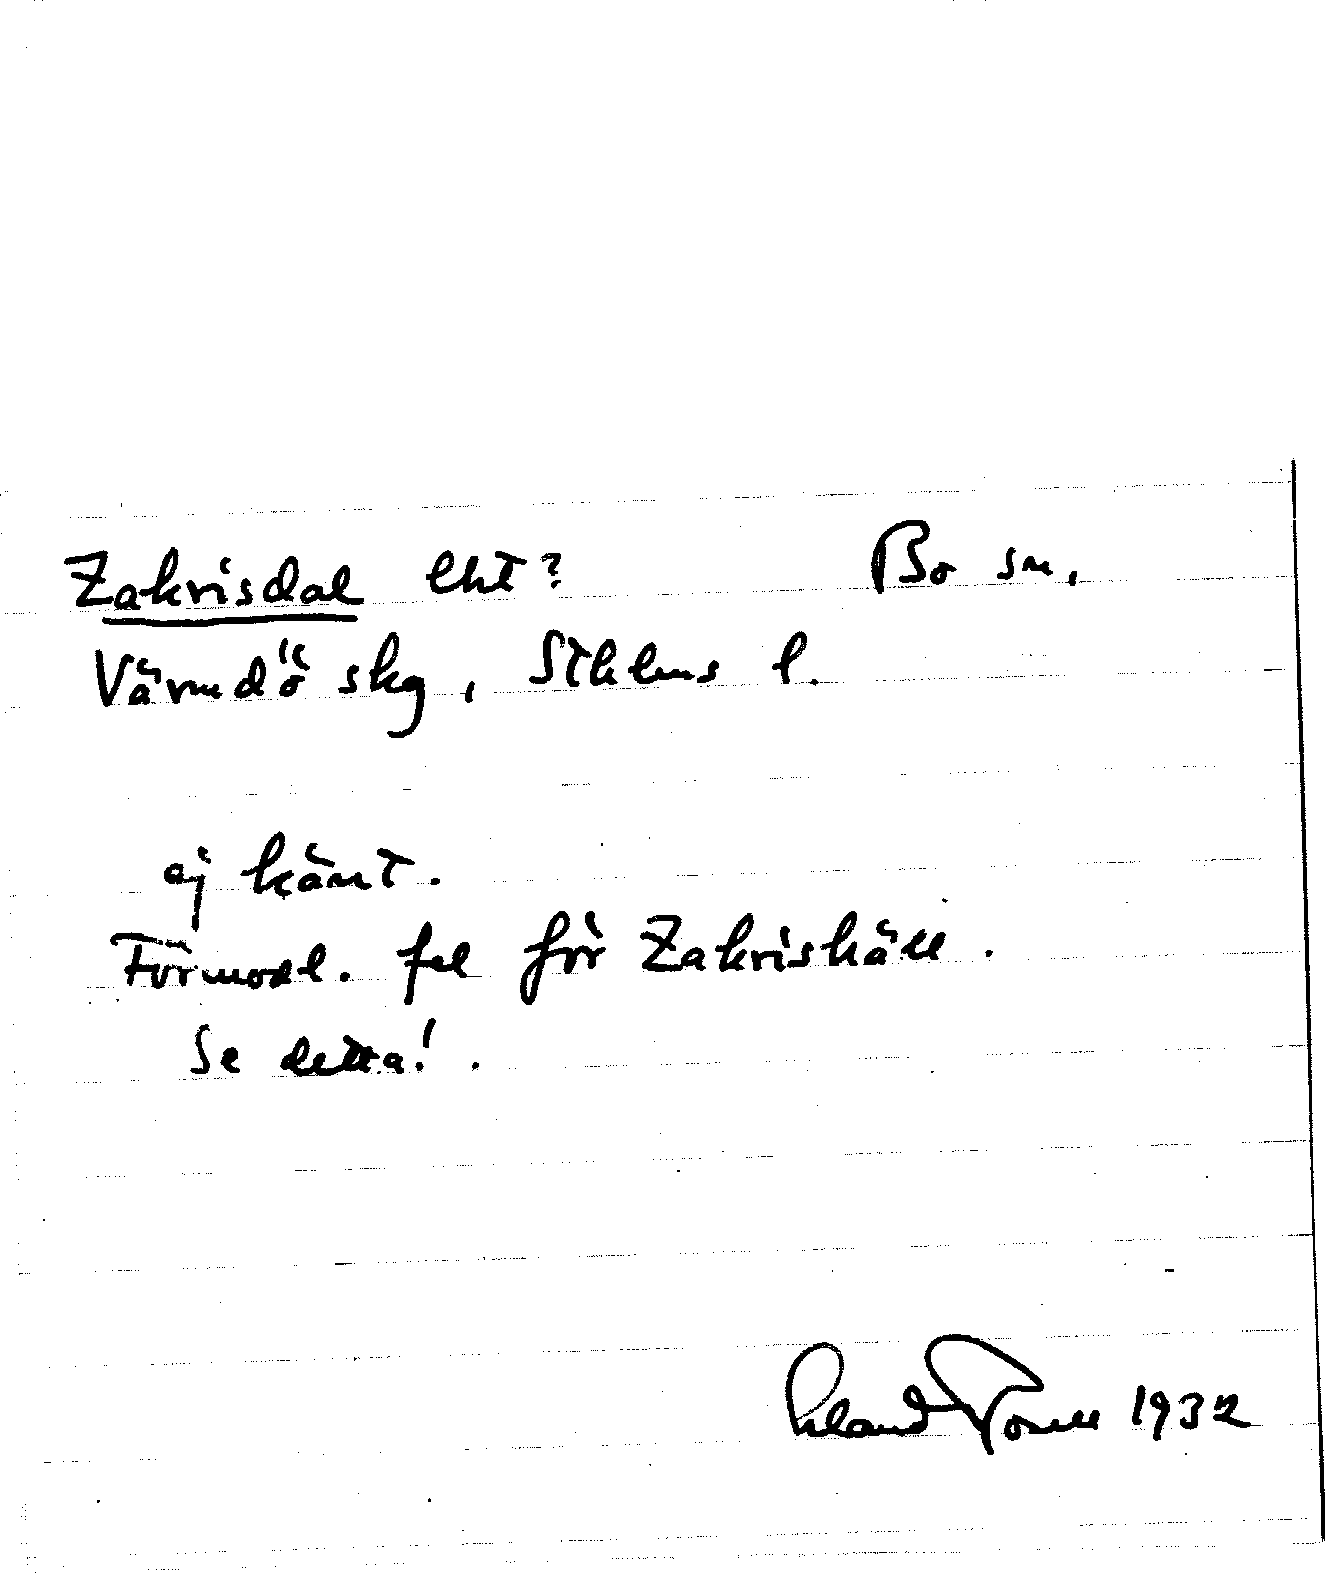 Zakrisdal lht? Bo sn.
Värmdö skg, Sthlms l.
ej känt.
Förmodl. fel för Zakrishäll.
Se detta!.
1932